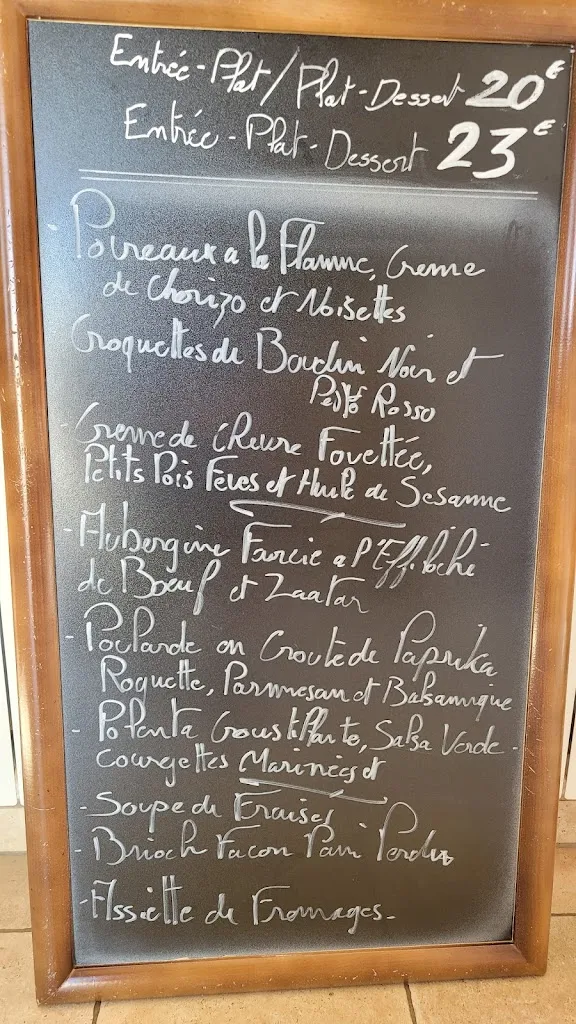 Entrée-Plat / Plat-Dessert 20€
Entrée-Plat-Dessert 23€
- Poireaux a la Flamme, Creme
de Chorizo et Noisettes
Croquettes de Boudin Noir et
Pesto Rosso
- Creme de Chevre Fouettée,
Petits Pois Feves et Huile de Sesamme
- Aubergine Farcie a l'Effiloché
de Boeuf et Zaatar
- Poularde en Croute de Paprika
Roquette, Parmesan et Balsamique
- Polenta Croustillante, Salsa Verde -
Courgettes Marinées et
- Soupe de Fraises
- Brioch Facon Pain Perdu
- Assiette de Fromages-